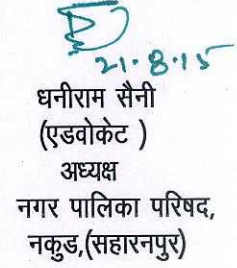 21.8.15
धनीराम सैनी
(एडवोकेट )
अध्यक्ष
नगर पालिका परिषद,
नकुड,(सहारनपुर)